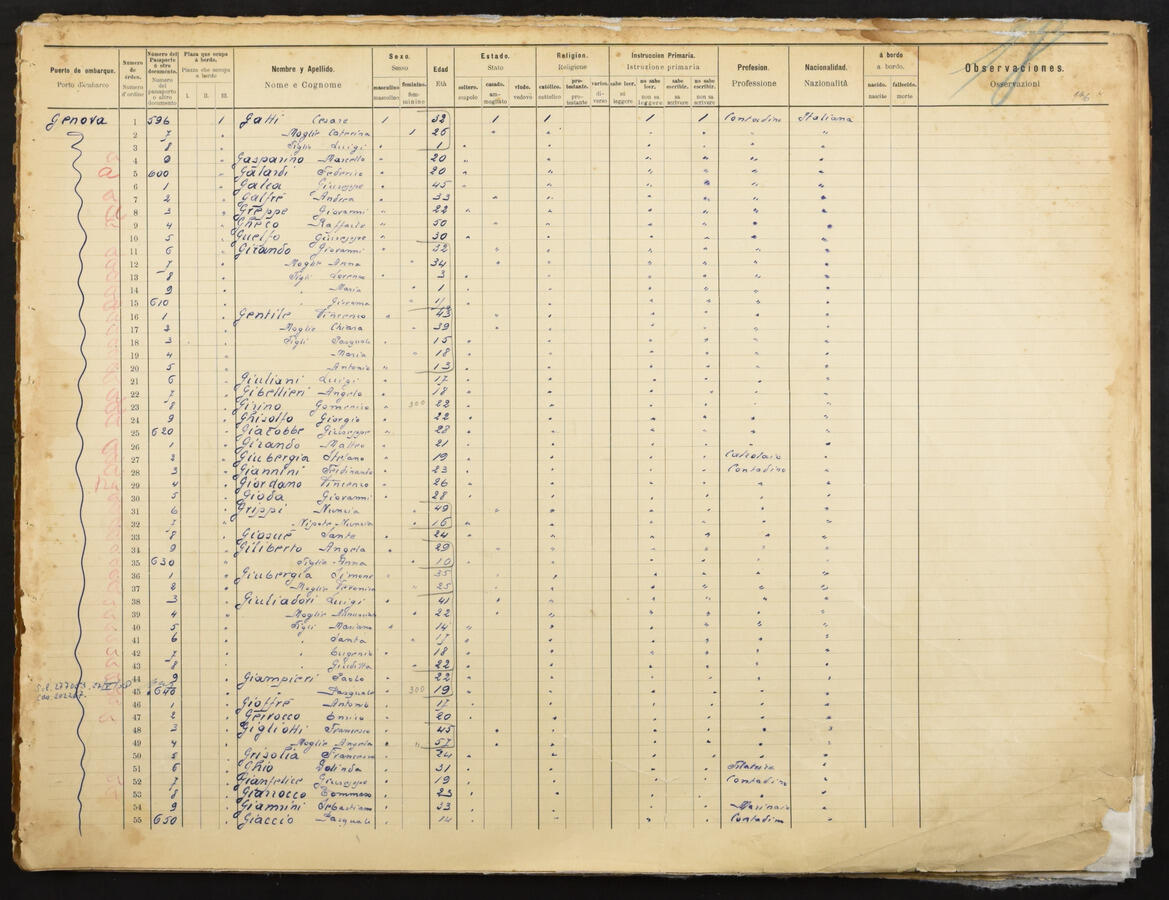 Puerto de embarque. Número de orden. Número del Pasaporte ó otro documento. Plaza que ocupa á bordo Nombre y Apellido. Sexo. Edad Estado. Religion. Instruccion Primaria. Profesion. Nacionalidad. á bordo Observaciones.
Porto d'imbarco Numero d'ordine Numero del passaporto o altro documento Piazza che occupa a bordo Nome e Cognome Sesso Età Stato Religione Istruzione primaria Professione Nazionalità a bordo. Osservazioni
I. II. III. masculino feminino. soltero. casado. viudo. católico. pro-testante. varios. sabe leer. no sabe leer. sabe escribir. no sabe escribir. nacido. fallecido.
masculino femminino scapolo ammogliato vedovo cattolico protestante diverso sa leggere non sa leggere sa scrivere non sa scrivere nascite morte
Genova 1 596 1 Gatti Cesare 1 32 1 1 1 1 Contadino Italiana
2 7 " Moglie Caterina 1 26
3 8 " Figlio Luigi " 1
4 9 " Gasparino Marcello " 20
5 600 " Galardi Federico " 20
6 1 " Galea Giuseppe " 45
7 2 " Galfré Andrea " 33
8 3 " Greppe Giovanni " 22
9 4 " Greco Raffaele " 50
10 5 " Guelfo Giuseppe " 30
11 6 " Girando Giovanni " 32
12 7 " Moglie Anna " 34
13 8 " Figli Lorenzo " 3
14 9 " Maria " 1
15 610 " Giovanna "
16 1 " Gentile Vincenzo " 43
17 2 " Moglie Chiara " 39
18 3 " Figli Pasquale " 15
19 4 " Maria " 18
20 5 " Antonio " 13
21 6 " Giuliani Luigi " 17
22 7 " Gibellieri Angelo " 18
23 8 " Girino " 300 22
24 9 " Ghisolfo Giorgio " 22
25 620 " Giacobbe Giuseppe " 28
26 1 " Girando Matteo " 21
27 2 " Giubergia Stefano " 19 Calzolaio
28 3 " Giannini Ferdinando " 23 Contadino
29 4 " Giordano Vincenzo " 26
30 5 " Gioda Giovanni " 28
31 6 " Grippi Nunzia " 49
32 7 " Nipote Nunzia " 16
33 8 " Giosué Sante " 24
34 9 " Giliberto Angela " 29
35 630 " Figlia Anna " 10
36 1 " Giubergia Simone " 35
37 2 " Moglie Veronica " 25
38 3 " Giuliadori Luigi " 41
39 4 " Moglie Annunziata " 22
40 5 " Figli Mariano " 14
41 6 " Santa " 17
42 7 " Eugenio " 18
43 8 " Giuditta " 22
44 9 " Giampieri Paolo " 22
45 640 " Pasquale 300 19
46 1 " Gioffré Antonio " 17
47 2 " Geirocco Enrico " 20
48 3 " Gigliotti Francesco " 45
49 4 " Moglie Angela " 57
50 5 " Grisolia Francesco " 24
51 6 " Ghio " 31
52 7 " Gianfelice Giuseppe " 19 Contadino
53 8 " Giarrocco Tommaso " 23
54 9 " Giannini Sebastiano " 33 Marinaio
55 650 " Giaccio Pasquale " 14 Contadino